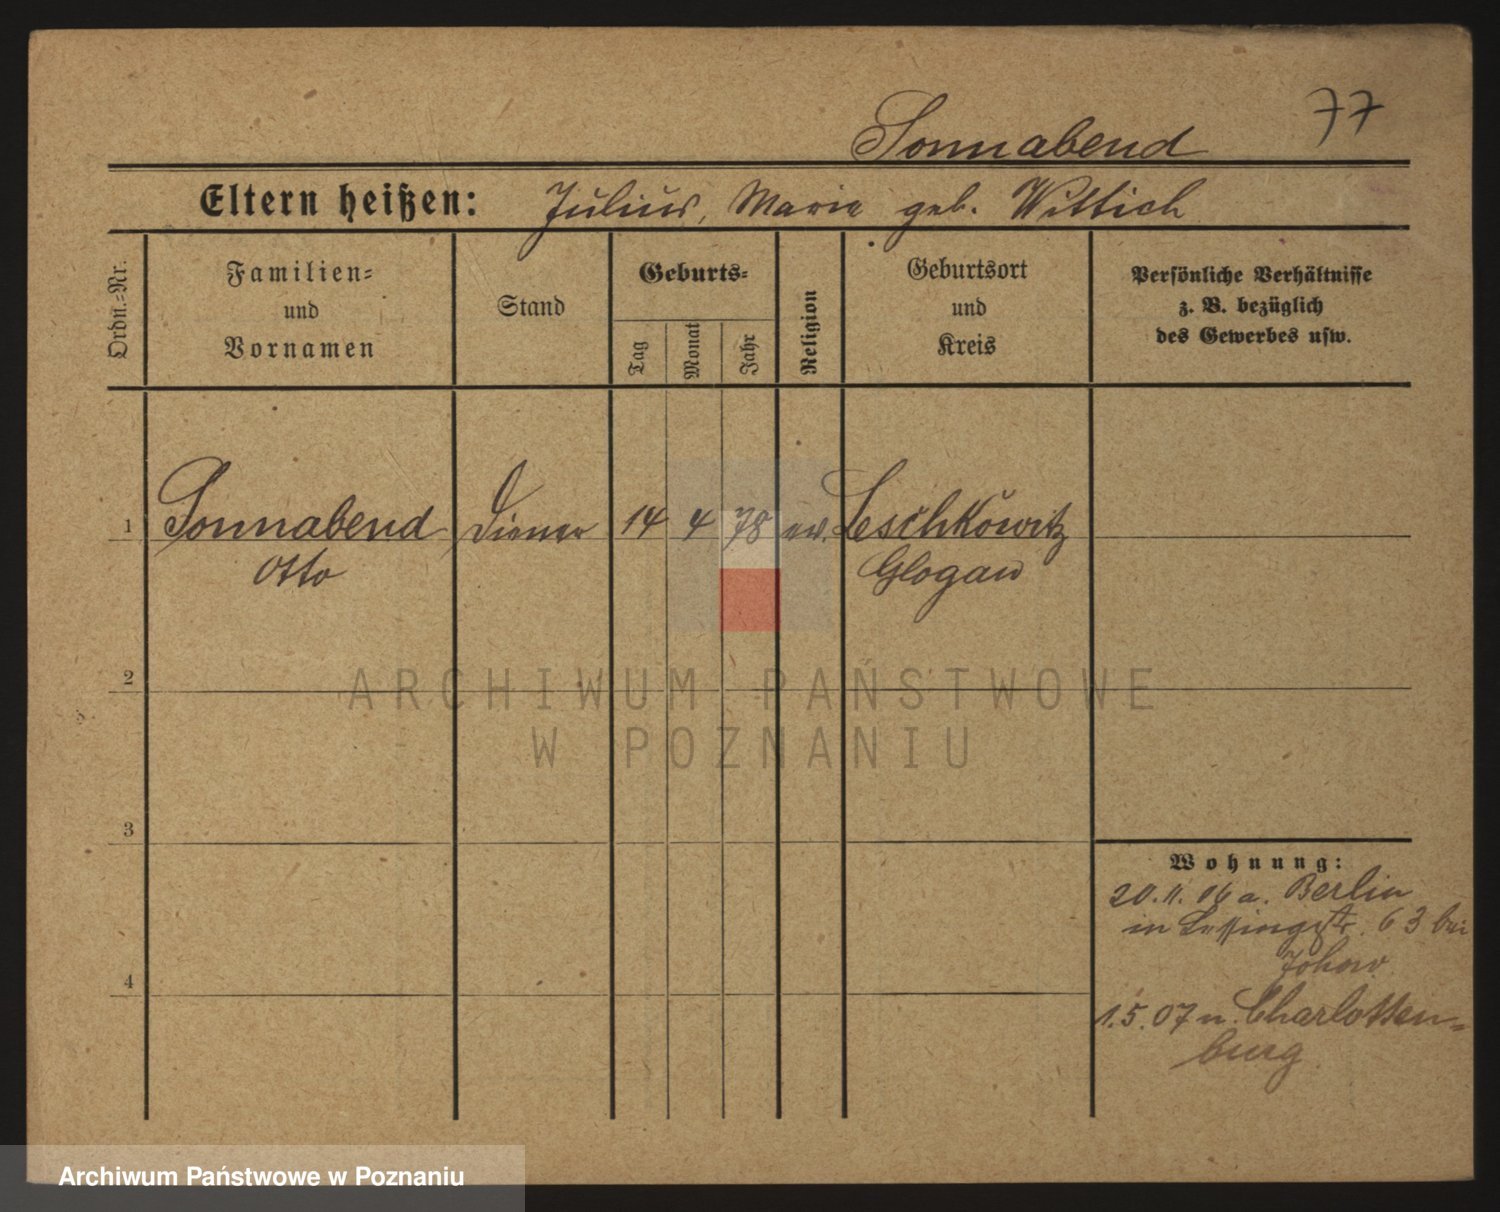 77
Sonnabend
Eltern heißen: Julius, Marie geb. Wittich
Ordn.-Nr.
Familien-
und
Vornamen
Stand
Geburts-
Tag
Monat
Jahr
Religion
Geburtsort
und
Kreis
Persönliche Verhältnisse
z. B. bezüglich
des Gewerbes usw.
1 Sonnabend Diener 14 4 78 ev. Leschkowitz
Otto Glogau
2
3
4
Wohnung:
20.11.06 a. Berlin
in Lessingstr. 63 bei
Johow
1.5.07 n. Charlotten-
burg
ARCHIWUM PAŃSTWOWE
W POZNANIU
Archiwum Państwowe w Poznaniu